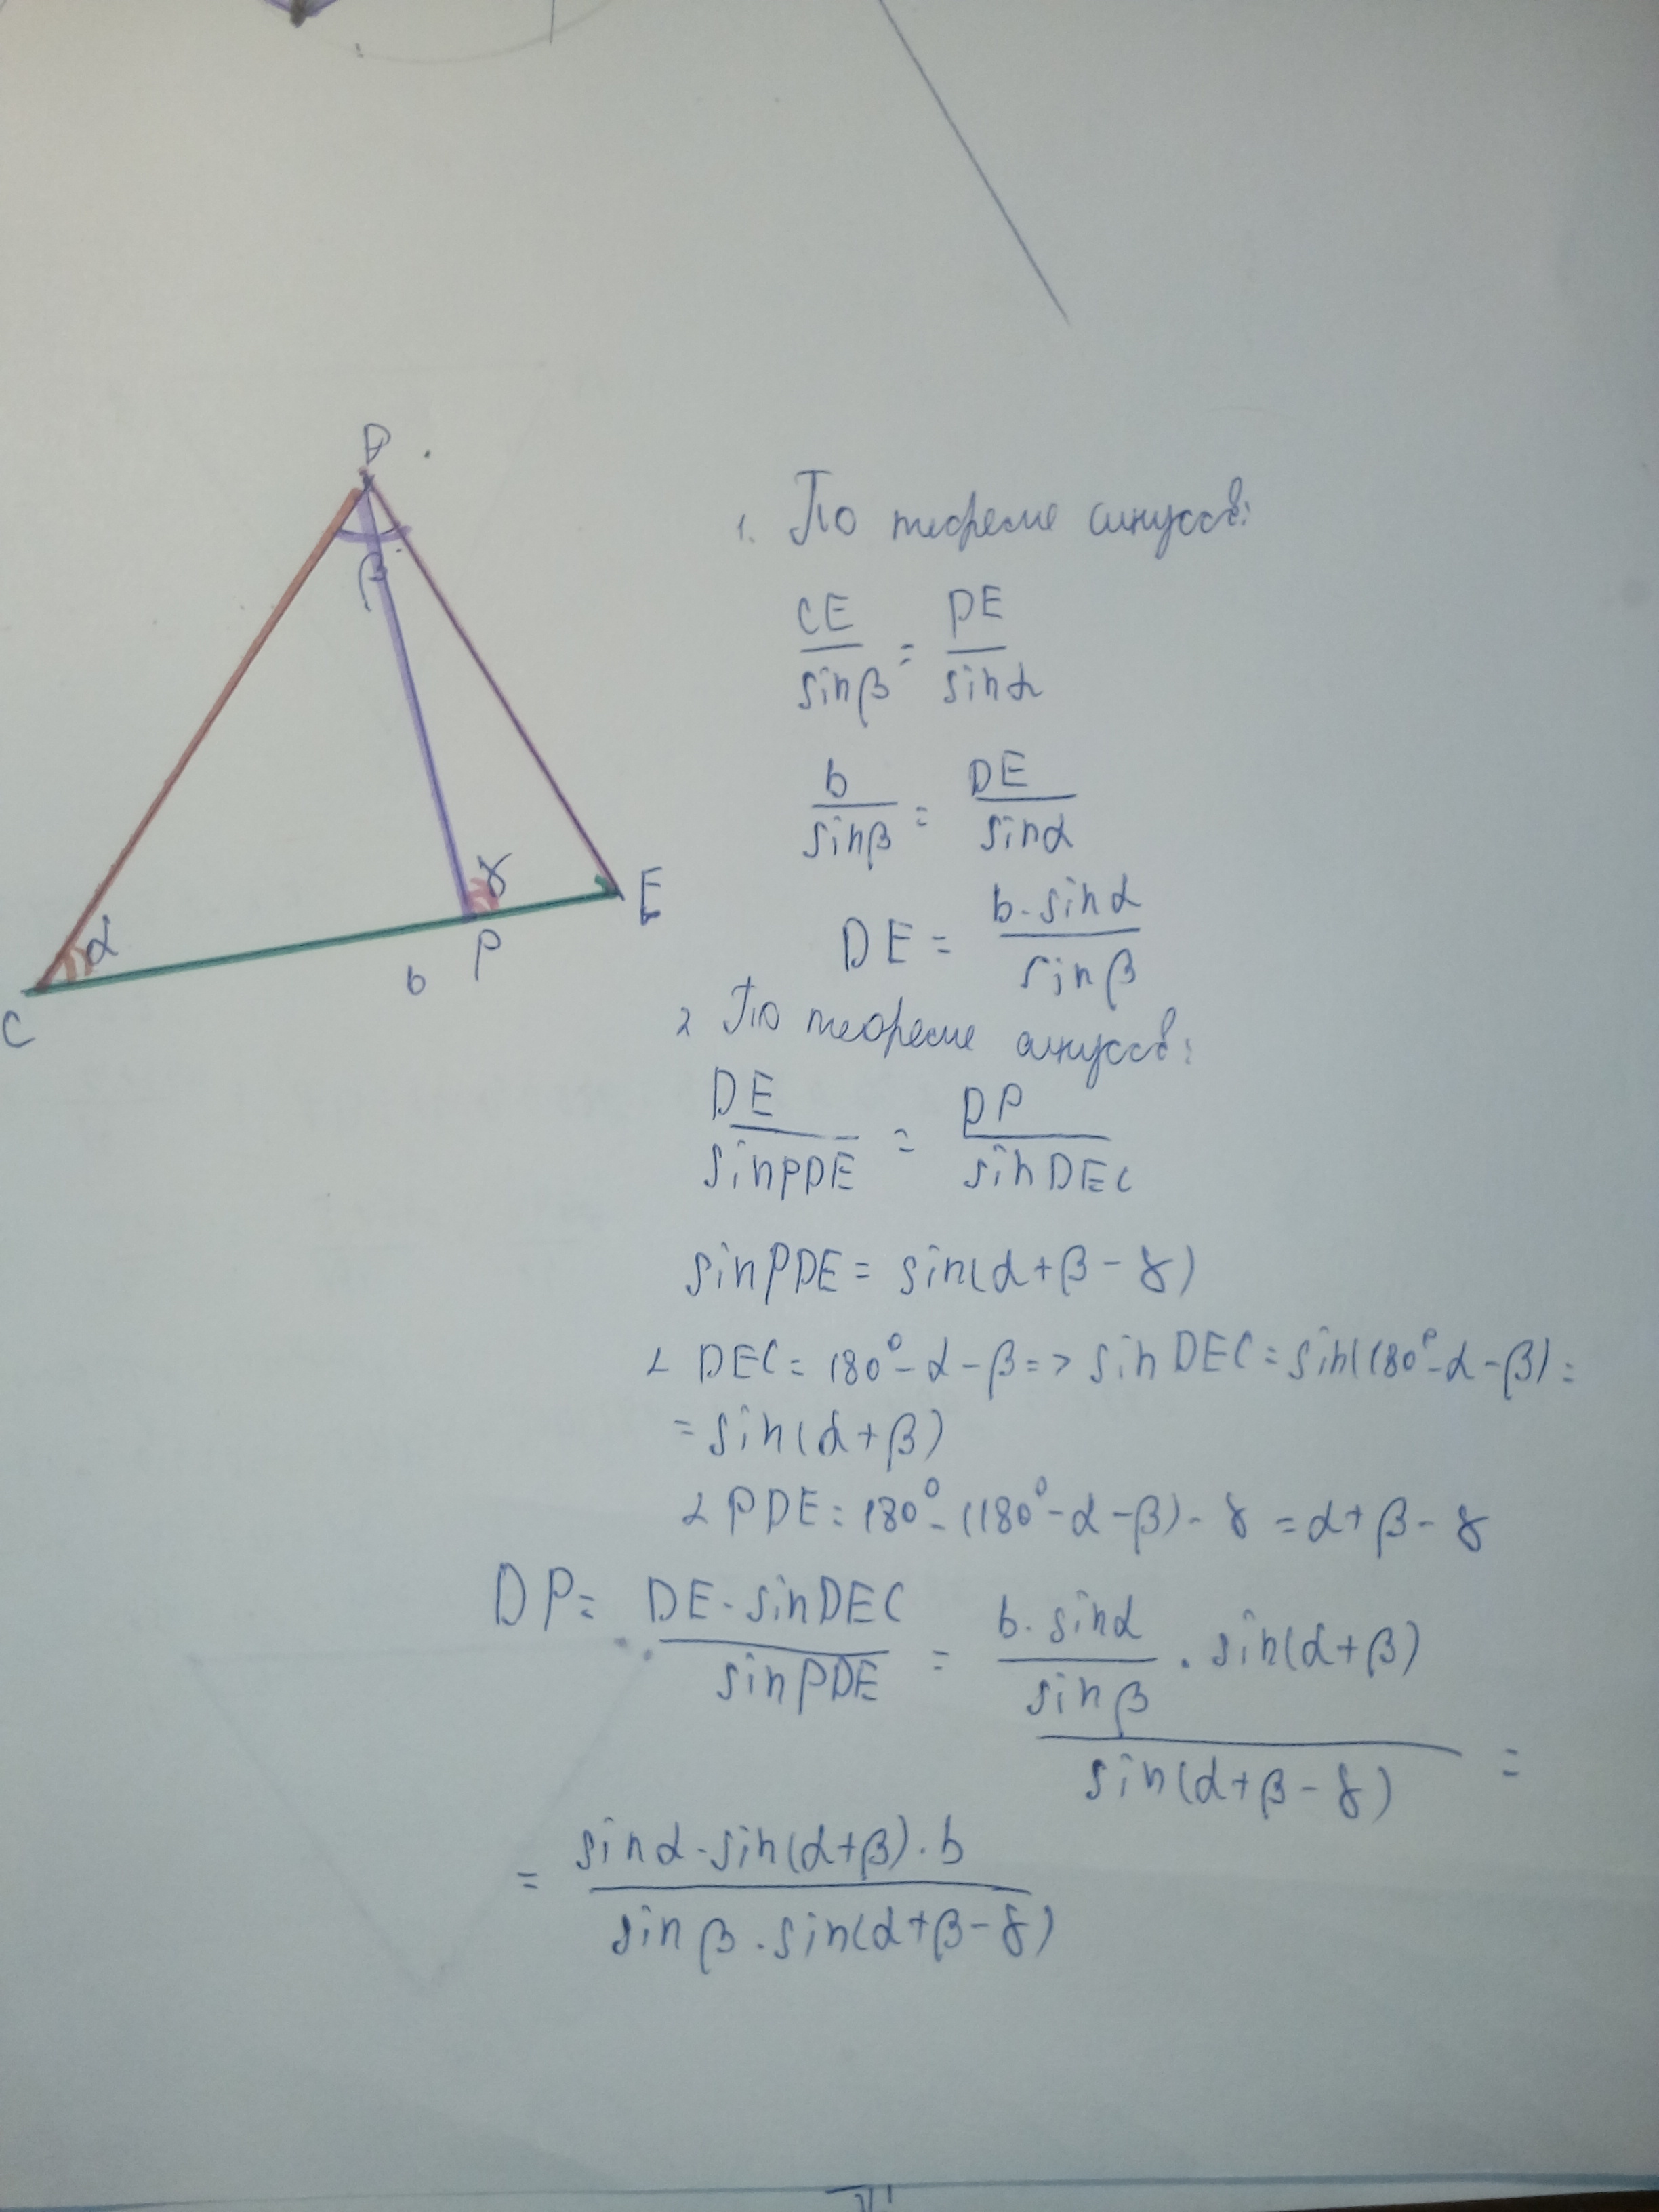 D
β
γ
E
α
b
P
C
1. По теореме синусов:
CE/sinβ = DE/sinα
b/sinβ = DE/sinα
DE = b·sinα/sinβ
2 По теореме синусов:
DE/sinPDE = DP/sinDEC
sinPDE = sin(α+β-γ)
∠DEC = 180°-α-β => sinDEC = sin(180°-α-β) =
= sin(α+β)
∠PDE = 180°-(180°-α-β)-γ = α+β-γ
DP = DE·sinDEC/sinPDE = (b·sinα/sinβ · sin(α+β))/sin(α+β-γ) =
= sinα·sin(α+β)·b/sinβ·sin(α+β-γ)